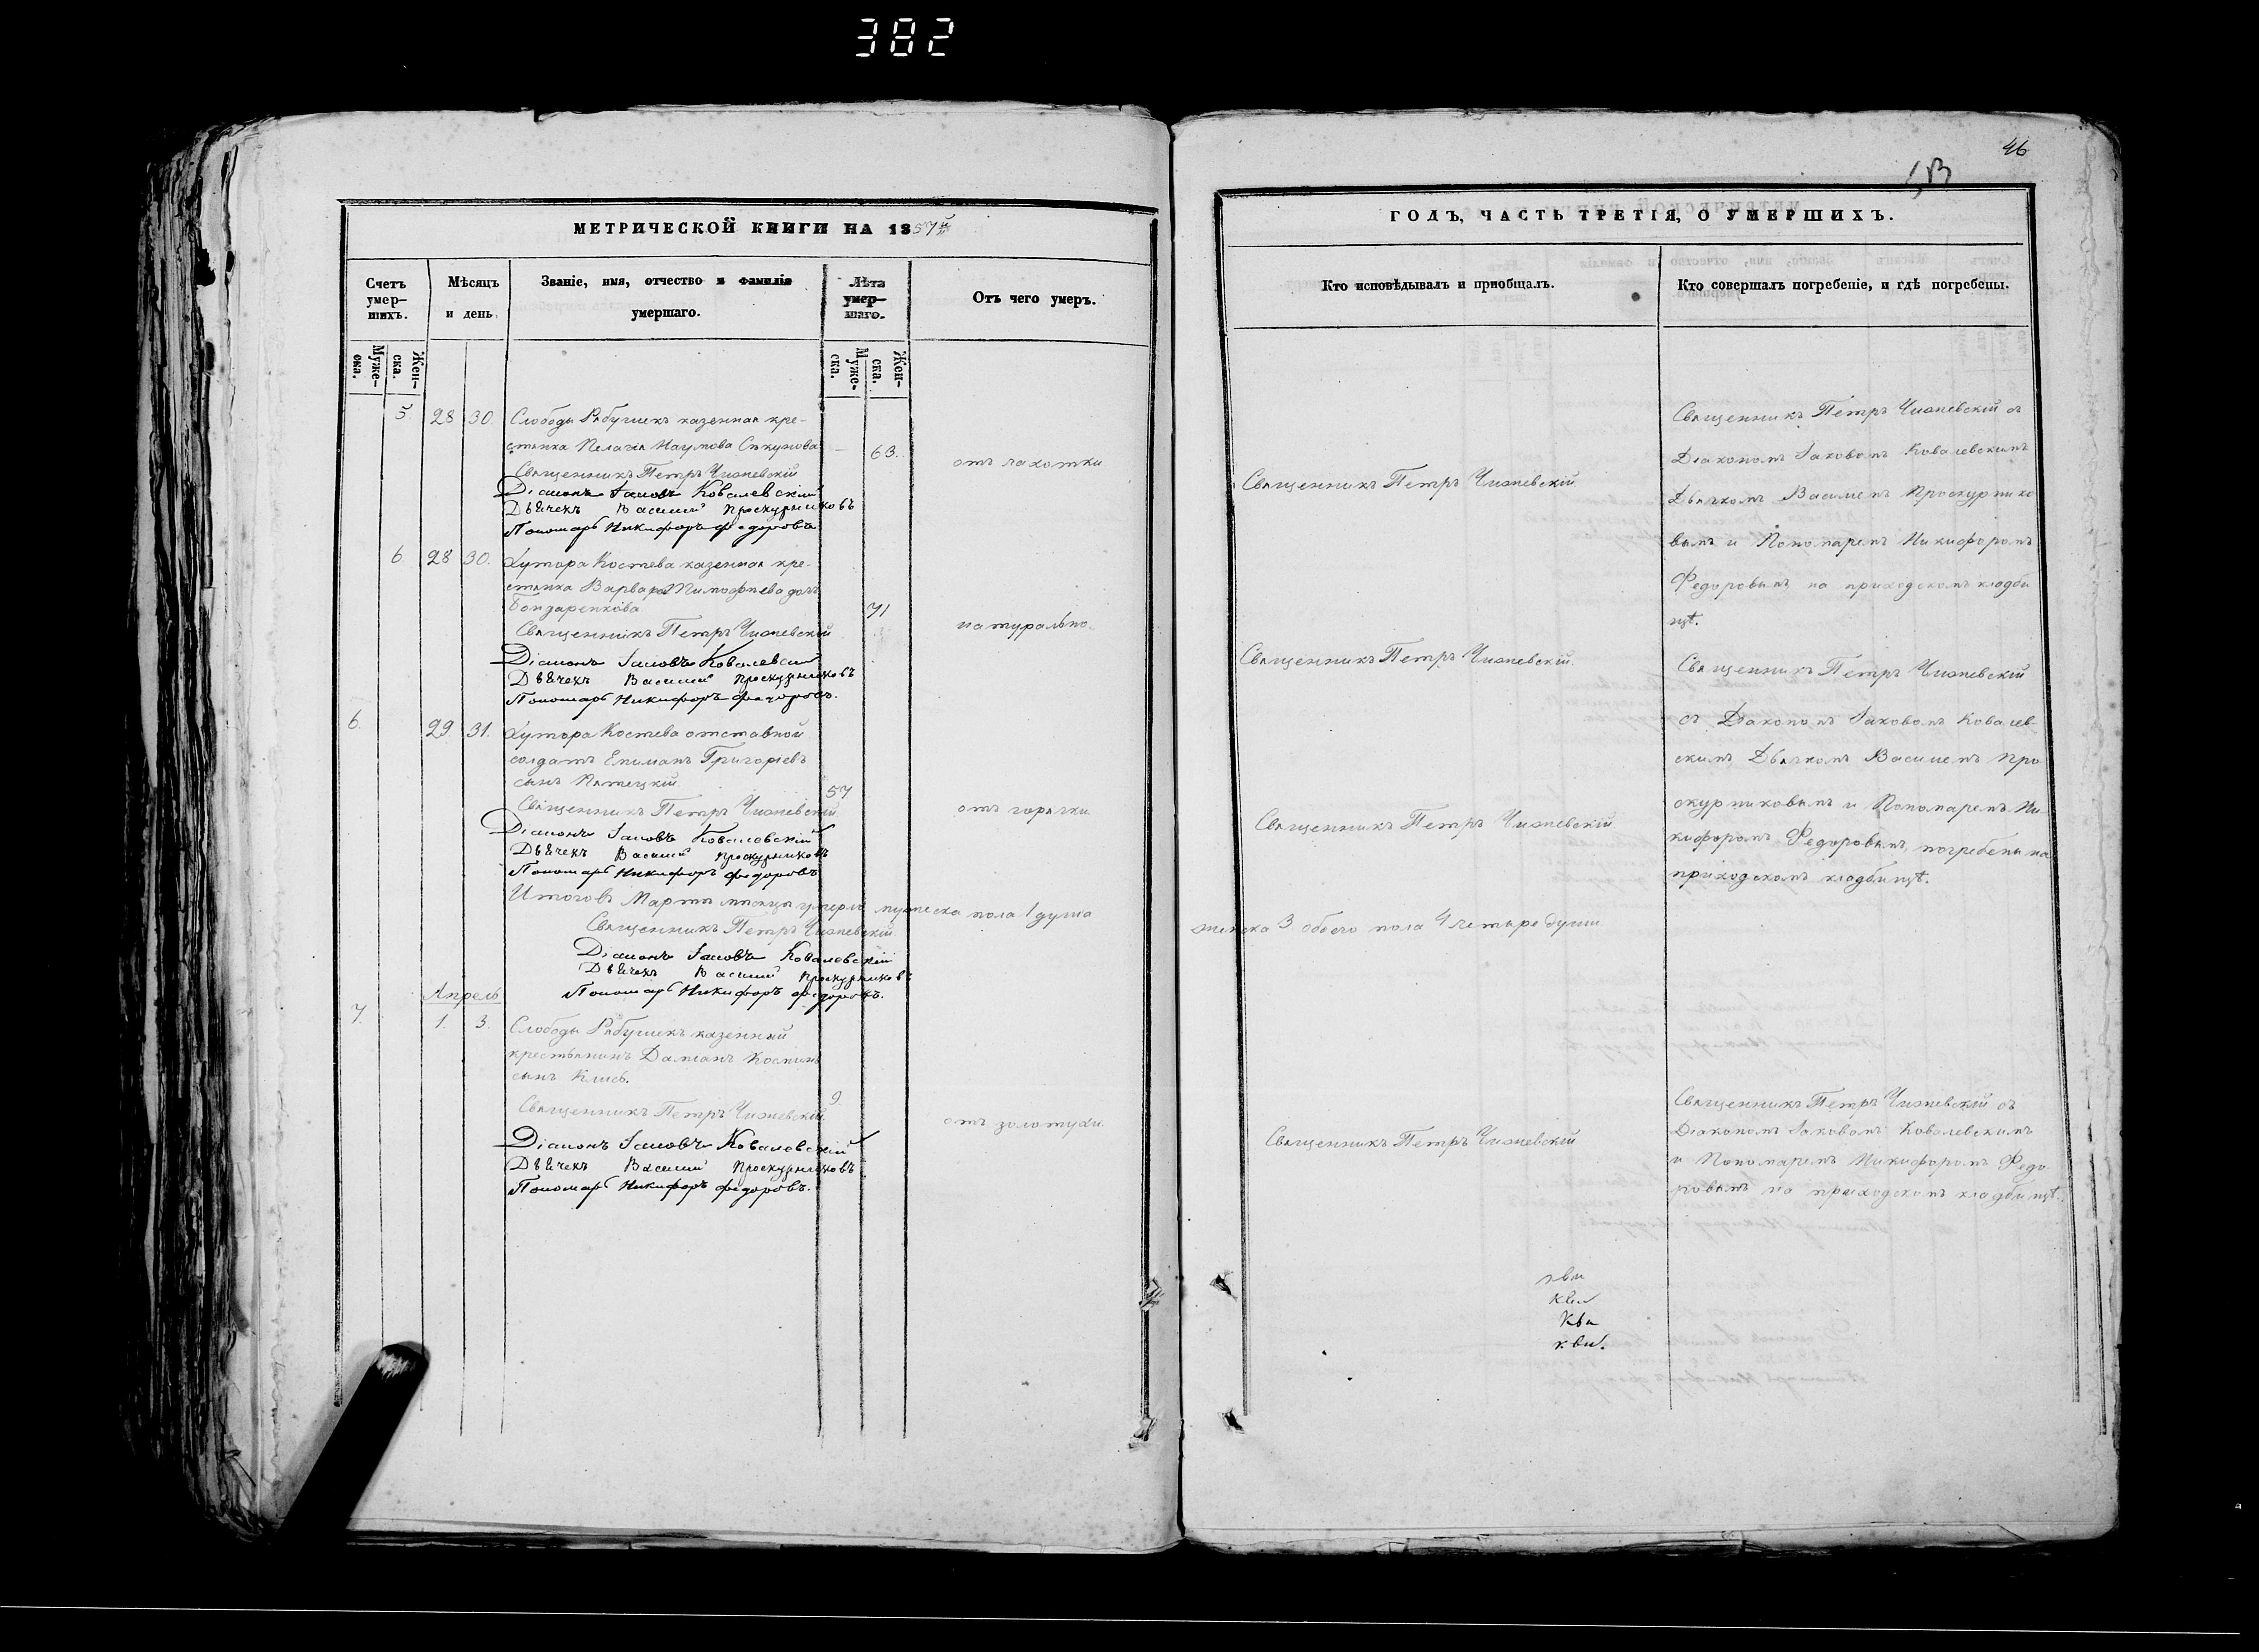 382
46
МЕТРИЧЕСКОЙ КНИГИ НА 1857й
Счетъ умер-шихъ.
Мѣсяцъ и день.
Званіе, имя, отчество и фамилія умершаго.
Лѣта умер-шаго.
Отъ чего умеръ.
Муже-ска.
Жен-ска.
Муже-ска.
Жен-ска.
5 28 30. Слободы Рябушекъ казенная кре-
стьянка Пелагія Наумова Сикунова — 63.
отъ чахотки
Священникъ Петръ Чижевскій
Діаконъ Іаковъ Ковалевскій
Дьячекъ Василий Проскурниковъ
Пономарь Никифоръ Федоровъ
6 28 30. Хутора Костева казенная кре-
стьянка Варвара Тимофѣева дочь
Бондаренкова 71
натурально.
Священникъ Петръ Чижевскій
Діаконъ Іаковъ Ковалевскій
Дьячекъ Василий Проскурниковъ
Пономарь Никифоръ Федоровъ.
6. 29. 31. Хутора Костева отставной
солдатъ Епиманъ Григоріевъ
сынъ Пятецкій 57
отъ горячки
Священникъ Петръ Чижевскій
Діаконъ Іаковъ Ковалевскій
Дьячекъ Василий Проскурниковъ
Пономарь Никифоръ Федоровъ
Итого въ Мартѣ мѣсяцѣ умерло мужеска пола 1 душа
Священникъ Петръ Чижевскій
Діаконъ Іаковъ Ковалевскій
Дьячекъ Василий Проскурниковъ
Пономарь Никифоръ Федоровъ.
Апрель
7. 1. 3. Слободы Рябушекъ казенный
крестьянинъ Даміанъ Косминъ
сынъ Клись. 9.
отъ золотухи.
Священникъ Петръ Чижевскій
Діаконъ Іаковъ Ковалевскій
Дьячекъ Василий Проскурниковъ
Пономарь Никифоръ Федоровъ.
ГОДЪ, ЧАСТЬ ТРЕТІЯ, О УМЕРШИХЪ.
Кто исповѣдывалъ и приобщалъ.
Кто совершалъ погребеніе, и гдѣ погребены.
Священникъ Петръ Чижевскій
Священникъ Петръ Чижевскій съ
Діакономъ Іаковомъ Ковалевскимъ
Дьячкомъ Василіемъ Проскурнико
вымъ и Пономаремъ Никифоромъ
Федоровымъ на приходскомъ кладби
щѣ.
Священникъ Петръ Чижевскій.
Священникъ Петръ Чижевскій
съ Діакономъ Іаковомъ Ковалев-
скимъ Дьячкомъ Василіемъ Про
скурниковымъ и Пономаремъ Ни-
кифоромъ Федоровымъ, погребены на
приходскомъ кладбищѣ.
Священникъ Петръ Чижевскій
женска 3 обоего пола 4 четыре души
Священникъ Петръ Чижевскій
Священникъ Петръ Чижевскій съ
Діакономъ Іаковомъ Ковалевскимъ
и Пономаремъ Никифоромъ Федо
ровымъ на приходскомъ кладбищѣ.